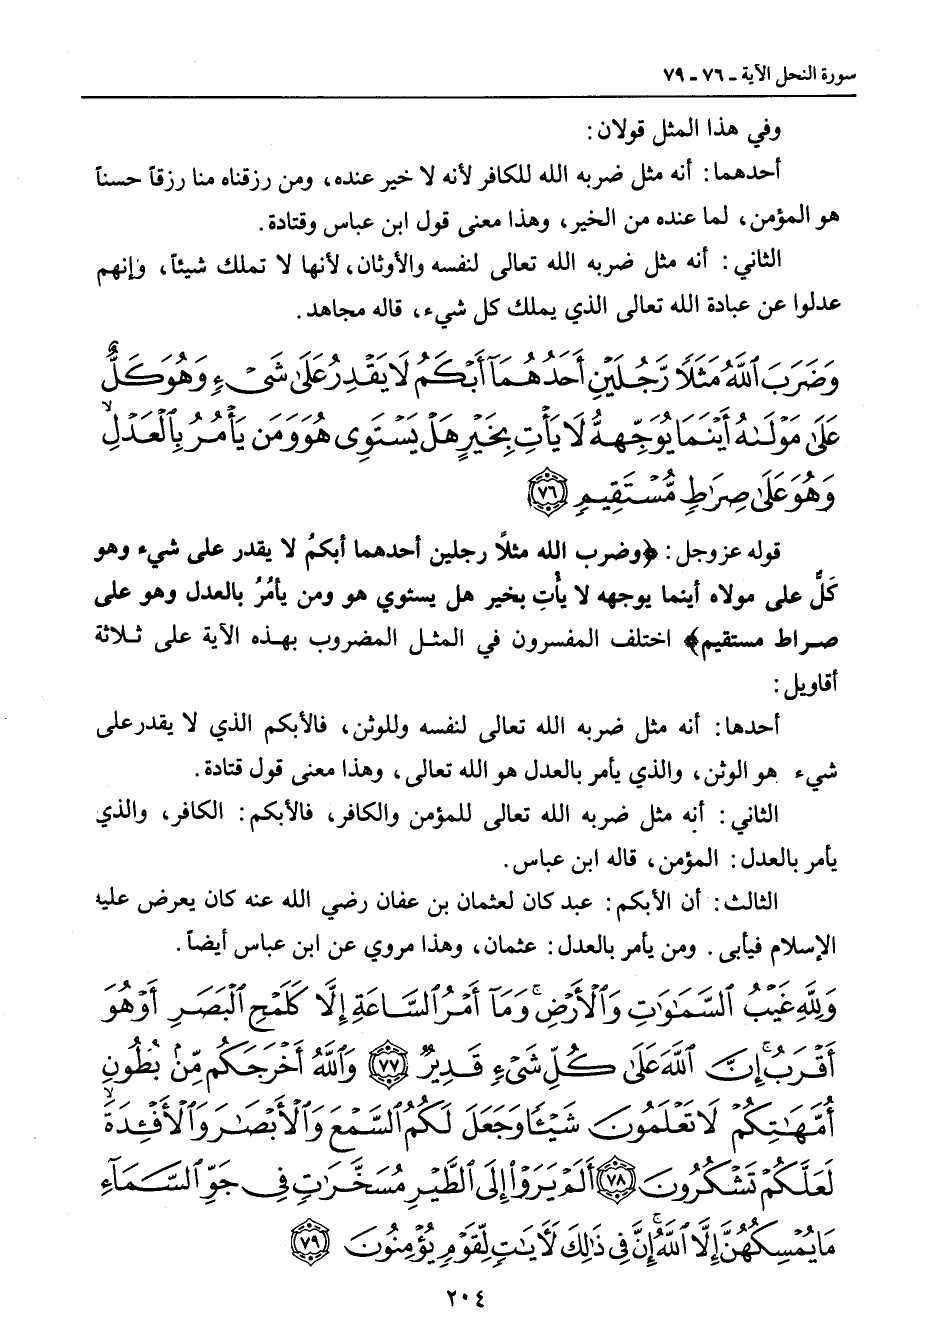 سورة النحل الآية ـ ٧٦ ـ ٧٩
وفي هذا المثل قولان:
أحدهما: أنه مثل ضربه الله للكافر لأنه لا خير عنده، ومن رزقناه منا رزقاً حسناً
هو المؤمن، لما عنده من الخير، وهذا معنى قول ابن عباس وقتادة.
الثاني: أنه مثل ضربه الله تعالى لنفسه والأوثان، لأنها لا تملك شيئاً، وإنهم
عدلوا عن عبادة الله تعالى الذي يملك كل شيء، قاله مجاهد.
وَضَرَبَ ٱللَّهُ مَثَلًا رَّجُلَيْنِ أَحَدُهُمَآ أَبْكَمُ لَا يَقْدِرُ عَلَىٰ شَىْءٍ وَهُوَ كَلٌّ
عَلَىٰ مَوْلَىٰهُ أَيْنَمَا يُوَجِّههُّ لَا يَأْتِ بِخَيْرٍ هَلْ يَسْتَوِى هُوَ وَمَن يَأْمُرُ بِٱلْعَدْلِ ۙ
وَهُوَ عَلَىٰ صِرَٰطٍ مُّسْتَقِيمٍ ٧٦
قوله عز وجل: ﴿وضرب الله مثلاً رجلين أحدهما أبكمُ لا يقدر على شيء وهو
كَلٌّ على مولاه أينما يوجهه لا يأْتِ بخير هل يستوي هو ومن يأمُرُ بالعدل وهو على
صراط مستقيم﴾ اختلف المفسرون في المثل المضروب بهذه الآية على ثلاثة
أقاويل:
أحدها: أنه مثل ضربه الله تعالى لنفسه وللوثن، فالأبكم الذي لا يقدر على
شيء هو الوثن، والذي يأمر بالعدل هو الله تعالى، وهذا معنى قول قتادة.
الثاني: أنه مثل ضربه الله تعالى للمؤمن والكافر، فالأبكم: الكافر، والذي
يأمر بالعدل: المؤمن، قاله ابن عباس.
الثالث: أن الأبكم: عبد كان لعثمان بن عفان رضي الله عنه كان يعرض عليه
الإسلام فيأبى. ومن يأمر بالعدل: عثمان، وهذا مروي عن ابن عباس أيضاً.
وَلِلَّهِ غَيْبُ ٱلسَّمَٰوَٰتِ وَٱلْأَرْضِ ۚ وَمَآ أَمْرُ ٱلسَّاعَةِ إِلَّا كَلَمْحِ ٱلْبَصَرِ أَوْ هُوَ
أَقْرَبُ ۚ إِنَّ ٱللَّهَ عَلَىٰ كُلِّ شَىْءٍ قَدِيرٌ ٧٧ وَٱللَّهُ أَخْرَجَكُم مِّنۢ بُطُونِ
أُمَّهَٰتِكُمْ لَا تَعْلَمُونَ شَيْـًٔا وَجَعَلَ لَكُمُ ٱلسَّمْعَ وَٱلْأَبْصَٰرَ وَٱلْأَفْـِٔدَةَ ۙ
لَعَلَّكُمْ تَشْكُرُونَ ٧٨ أَلَمْ يَرَوْا۟ إِلَى ٱلطَّيْرِ مُسَخَّرَٰتٍ فِى جَوِّ ٱلسَّمَآءِ
مَا يُمْسِكُهُنَّ إِلَّا ٱللَّهُ ۗ إِنَّ فِى ذَٰلِكَ لَءَايَٰتٍ لِّقَوْمٍ يُؤْمِنُونَ ٧٩
٢٠٤